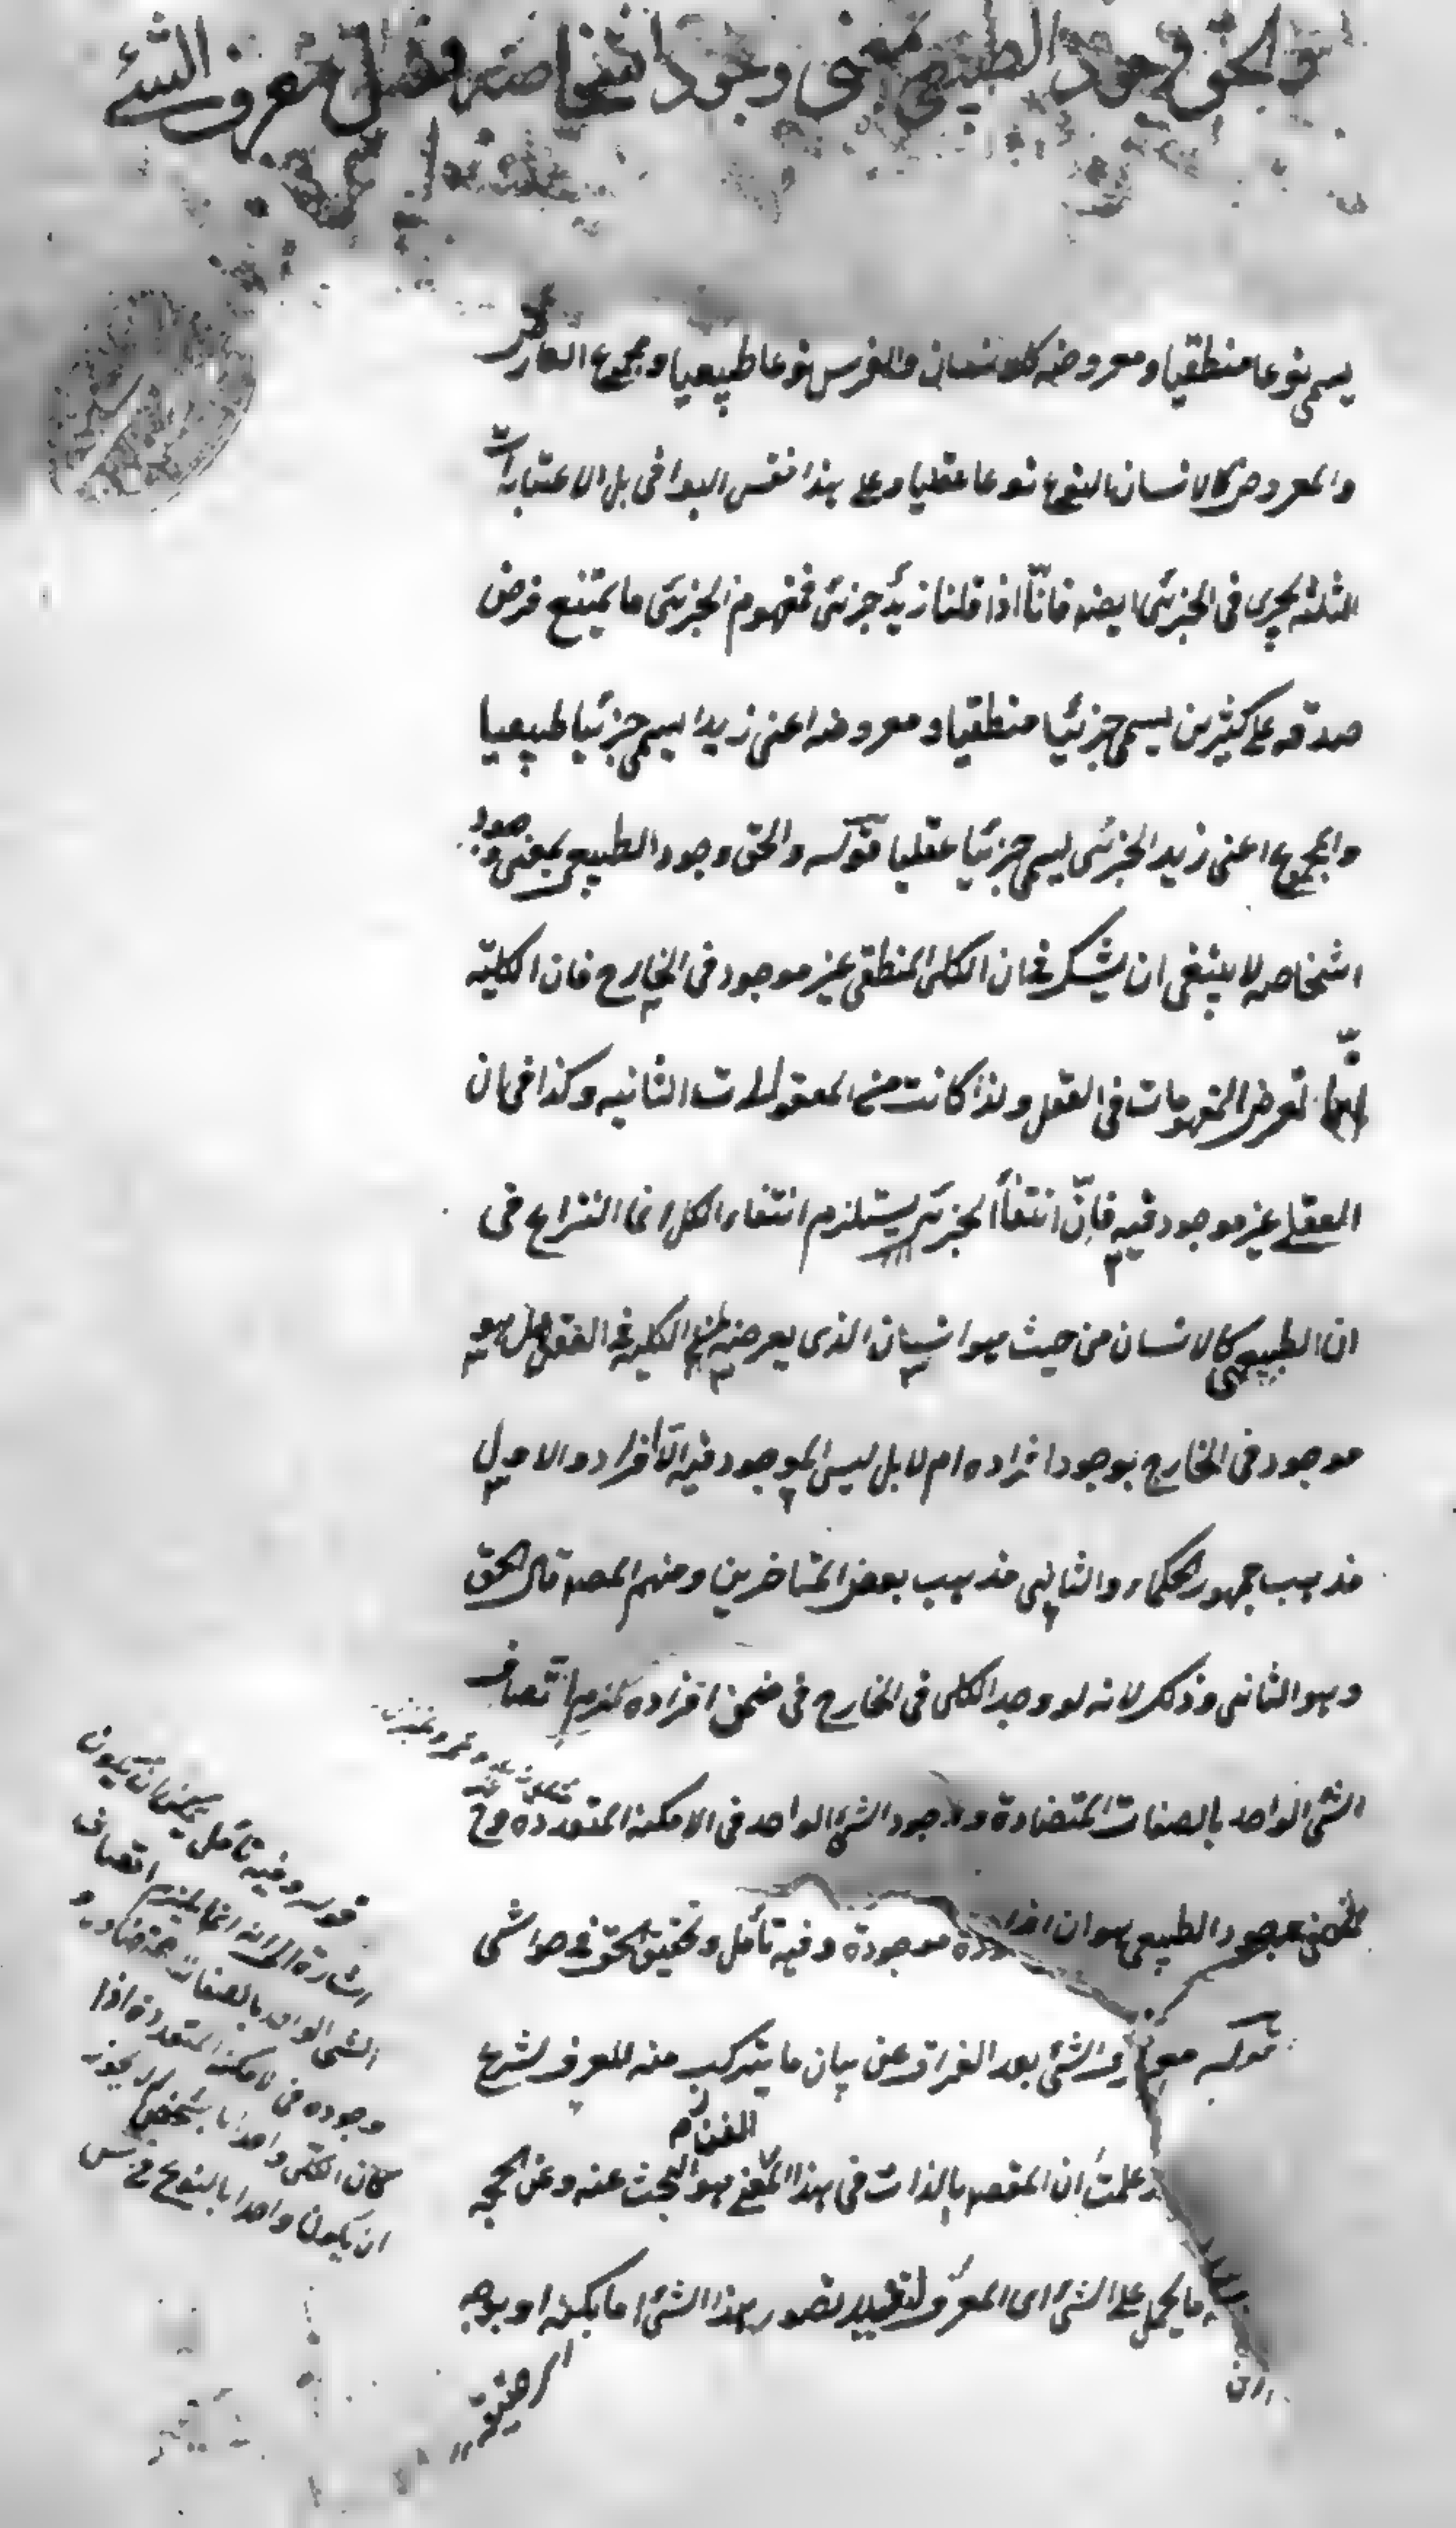 والحق وجود الطبيعي بمعنى وجود اشخاصه فصل معرف الشئ
يسمى نوعا منطقيا ومعروضه كالانسان والفرس نوعا طبيعيا ومجموع العارض
والمعروض كالانسان النوع نوعا عقليا وعلى هذا فقس البواقى بل الاعتبارات
الثلثة يجرى فى الجزئى ايضه فانّا اذا قلنا زيدٌ جزئى فمفهوم الجزئى ما يمتنع فرض
صدقه على كثيرين يسمى جزئيا منطقيا ومعروضه اعنى زيدا يسمى جزئيا طبيعيا
والمجموع اعنى زيد الجزئى يسمى جزئيا عقليا قوله والحق وجود الطبيعى بمعنى وجود
اشخاصه لا ينبغى ان يشك فى ان الكلى المنطقى غير موجود فى الخارج فان الكلية
انّما تعرض المفهومات فى العقل ولذا كانت من المعقولات الثانيه وكذا فى ان
العقلى غير موجود فيه فانّ انتفاء الجزئى يستلزم انتفاء الكل انما النزاع فى
ان الطبيعى كالانسان من حيث هو انسان الذى يعرضه الكليه فى العقل هل هو
موجود فى الخارج بوجود افراده ام لا بل ليس الموجود فيه الّا افراد والاول
مذهب جمهور الحكماء والثانى مذهب بعض المتاخرين ومنهم المصه قال الحق
وهو الثانى وذلك لانه لو وجد الكلى فى الخارج فى ضمن افراده لزم اتصاف
الشئ الواحد بالصفات المتضادة ووجود الشئ الواحد فى الامكنة المتعدده وح
فمعنى وجود الطبيعى هو ان افراده موجودة وفيه تأمل وتحقيق الحق فى حواشى
قوله معرف الشئ بعد الفراق عن بيان ما يتركب منه المعرف لشرع
علمت ان المقصه بالذات فى هذا الفن هو البحث عنه وعن الحجه
ما يحمل على الشئ اى المعرَّف لتفييد تصور هذا الشئ اما بكنه او بوجه
قوله وفيه تأمل يمكن ان يكون
اشارة الى انه انما يلزم اتصاف
الشئ الواحد بالصفات متضاده و
وجوده فى لامكنة المتعددة اذا
كان الكلى واحدا بالشخص لم لا يجوز
ان يكون واحدا بالنوع